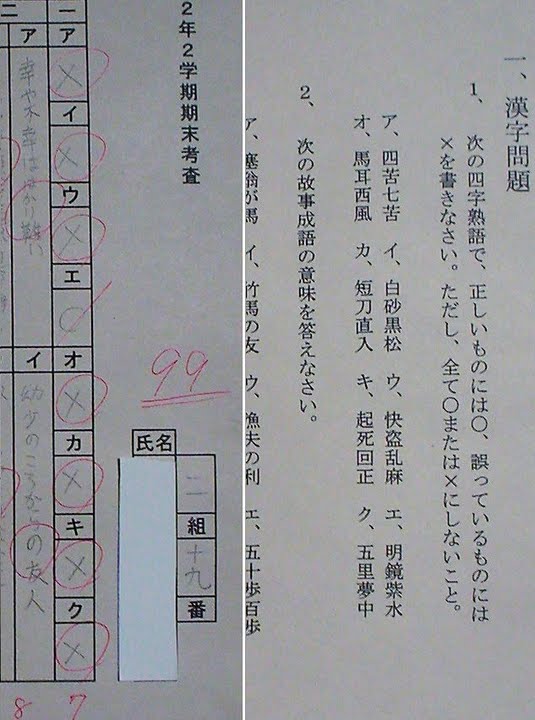 一、漢字問題
1、次の四字熟語で、正しいものには〇、誤っているものには
×を書きなさい。ただし、全て〇または×にしないこと。
ア、四苦七苦 イ、白砂黒松 ウ、快盗乱麻 エ、明鏡紫水
オ、馬耳西風 カ、短刀直入 キ、起死回正 ク、五里夢中
2、次の故事成語の意味を答えなさい。
ア、塞翁が馬 イ、竹馬の友 ウ、漁夫の利 エ、五十歩百歩
2年2学期期末考査
二組十九番
氏名
99
一 ア × イ × ウ × エ 〇 オ × カ × キ × ク ×
7
二 ア 幸や不幸は分かり難い イ 幼少のころからの友人
8